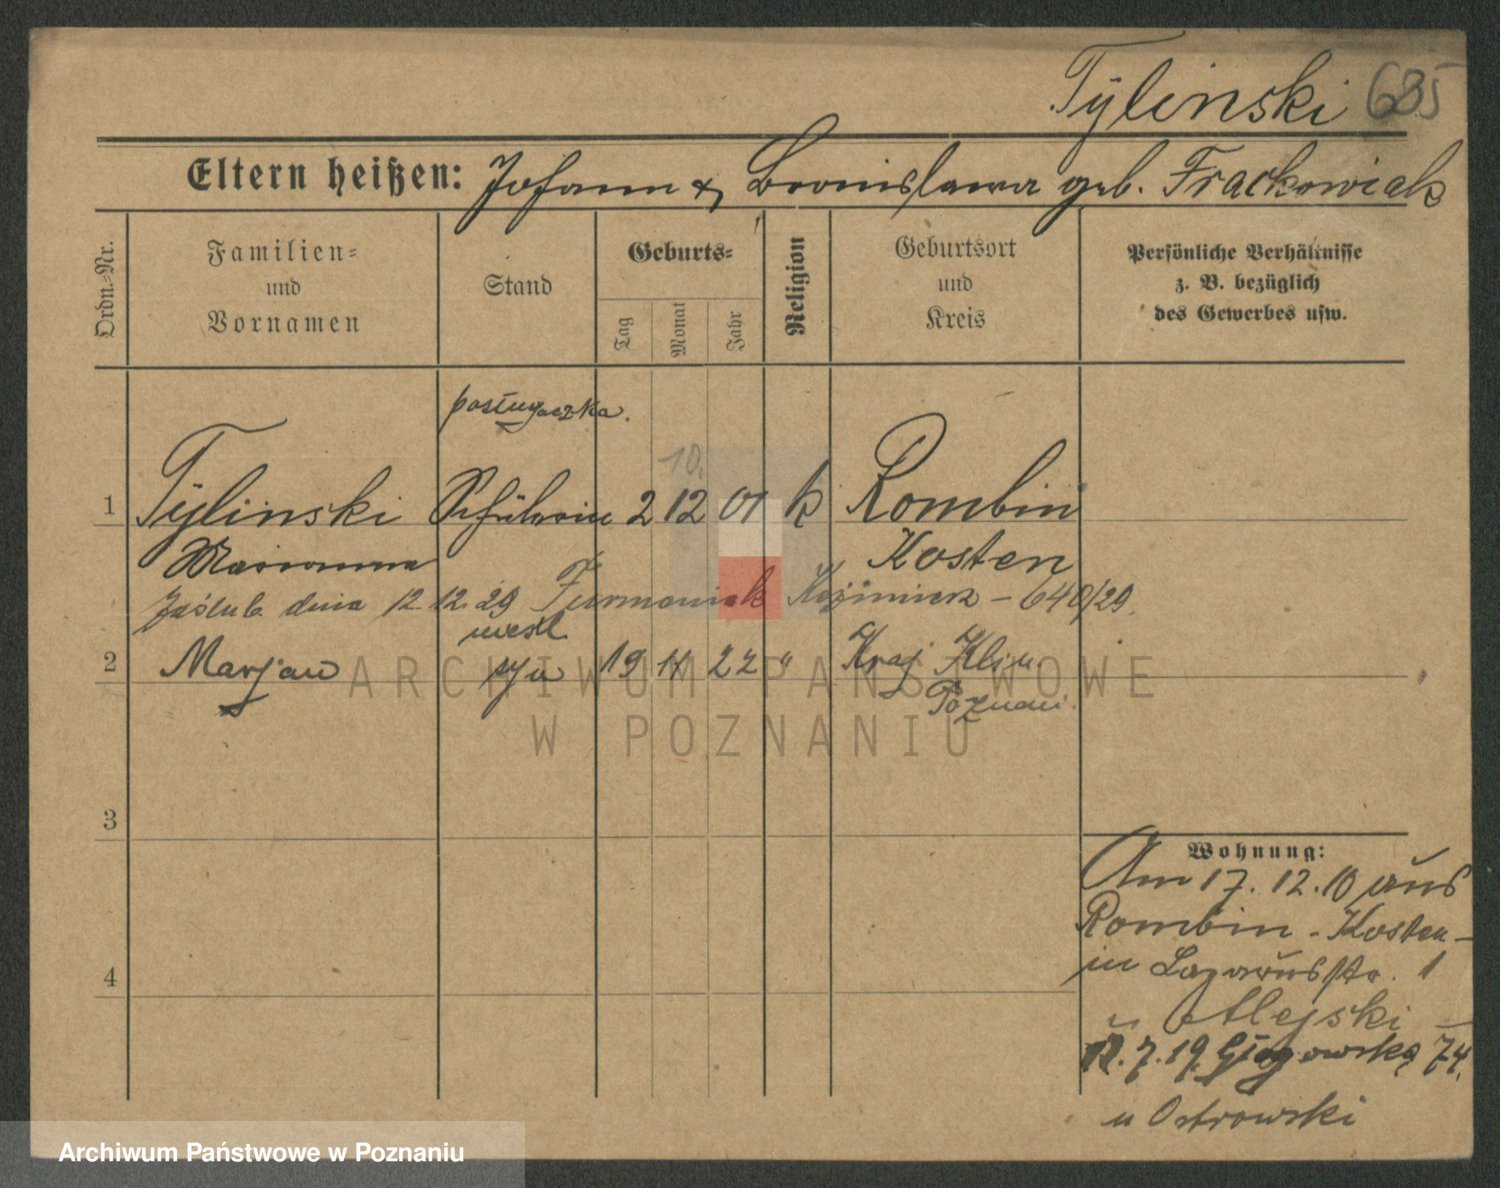 Tylinski 685
Eltern heißen: Johann & Bronislawa geb. Frackowiak
Ordn.-Nr.
Familien-
und
Vornamen
Stand
Geburts-
Tag
Monat
Jahr
Religion
Geburtsort
und
Kreis
Persönliche Verhältnisse
z. B. bezüglich
des Gewerbes usw.
posługaczka.
10.
1 Tylinski Schülerin 2 12 01 k Rombin
Marianna Kosten
Zaślub. dnia 12. 12. 29 Furmaniak Kazimierz - 640/29.
nieśl.
2 Marjan syn 19 11 22 " Kraj Klin.
Poznań.
3
4
Wohnung:
Am 17. 12. 10 aus
Rombin - Kosten -
in Lazarusstr. 1
u Alejski
12. 7. 19. Głogowska 74.
u Ostrowski
ARCHIWUM PAŃSTWOWE
W POZNANIU
Archiwum Państwowe w Poznaniu